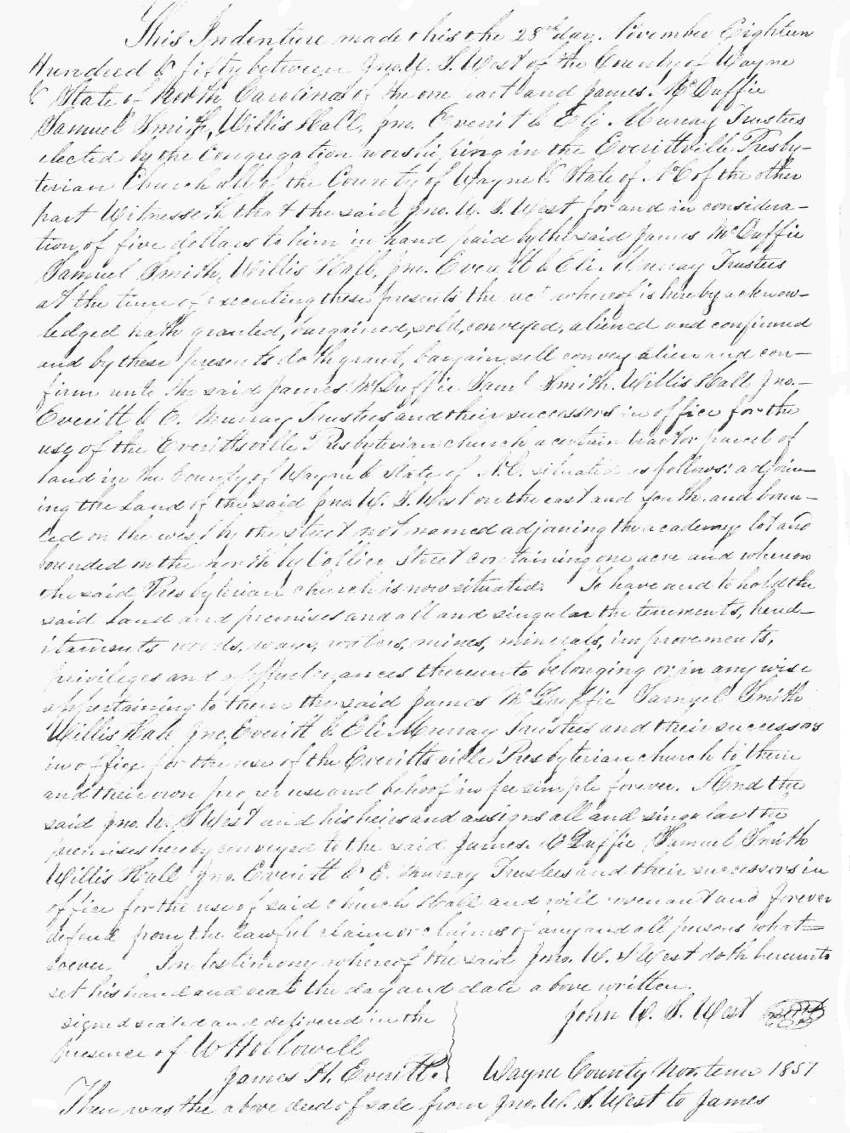 This Indenture made this the 28th day. November Eighteen
Hundred & fifty between Jno. W. S. West of the County of Wayne
& State of North Carolina of the one part and James. McDuffie
Samuel Smith, Willis Hall, Jno. Everitt & Eli. Murray Trustees
elected by the Congregation worshipping in the Everittville Presby-
terian Church all of the County of Wayne & State of N.C of the other
part Witnesseth that the said Jno. W. S. West for and in considera-
tion of five dollars to him in hand paid by the said James McDuffie
Samuel Smith, Willis Hall, Jno. Everitt & Eli. Murray Trustees
at the time of executing these presents the rect whereof is hereby acknow-
ledged hath granted, bargained, sold, conveyed, aliened and confirmed
and by these presents doth grant, bargain, sell convey alien and con-
firm unto the said James McDuffie Saml Smith. Willis Hall Jno.
Everitt & E. Murray Trustees and their successors in office for the
use of the Everittsville Presbyterian church a certain tract or parcel of
land in the County of Wayne & State of N.C. situated as follows: adjoin-
ing the Land of the said Jno. W. S. West on the east and South. and boun-
ded on the west by the street not named adjoining the academy lot and
bounded on the north by Collier Street containing one acre and whereon
the said Presbyterian church is now situated. To have and to hold the
said Land and premises and all and singular the tenements, hered-
itaments woods, ways, waters, mines, minerals, improvements,
privileges and appurtenances thereunto belonging or in any wise
appertaining to them the said James McDuffie Samuel Smith
Willis Hall Jno. Everitt & Eli Murray Trustees and their successors
in office for the use of the Everittsville Presbyterian church to them
and their own proper use and behoof in fee simple forever. And the
said Jno. W. S West and his heirs and assigns all and singular the
premises hereby conveyed to the said James. McDuffie, Samuel Smith
Willis Hall Jno. Everitt & E. Murray Trustees and their successors in
office for the use of said church shall and will covenant and forever
defend from the lawful claim or claims of any and all persons what=
soever In testimony whereof the said Jno. W. S West doth hereunto
set his hand and seal the day and date above written.
signed sealed and delivered in the John W. S. West
presence of W Hollowell
James H. Everitt. Wayne County Nov. term 1851
Then was the above deed of sale from Jno. W. S. West to James